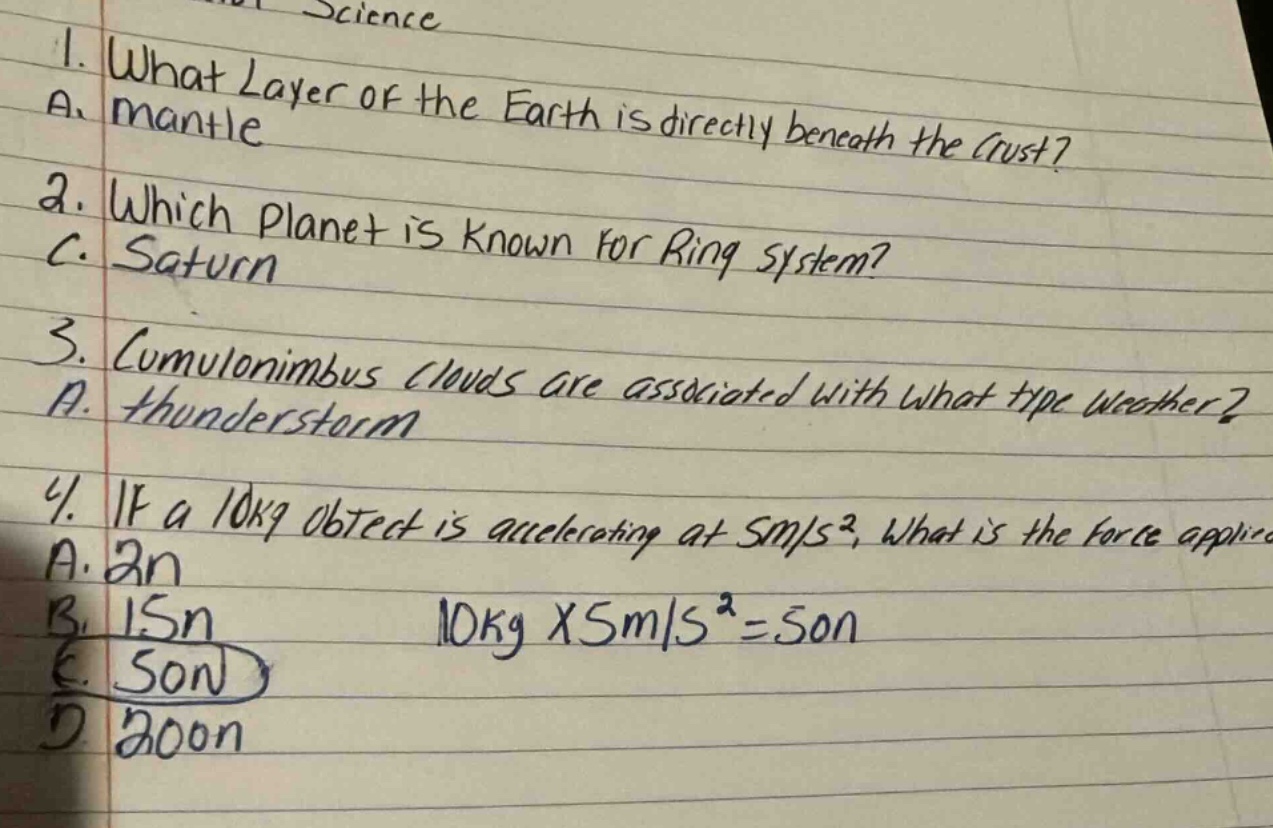 Science
1. What Layer of the Earth is directly beneath the Crust?
A. mantle
2. Which Planet is Known for Ring System?
C. Saturn
3. Cumulonimbus Clouds are associated with what type weather?
A. thunderstorm
4. If a 10kg obTect is accelerating at 5m/s², What is the force applied
A. 2n
B. 15n
10kg X 5m/s² = 50n
C. 50N
D. 200n